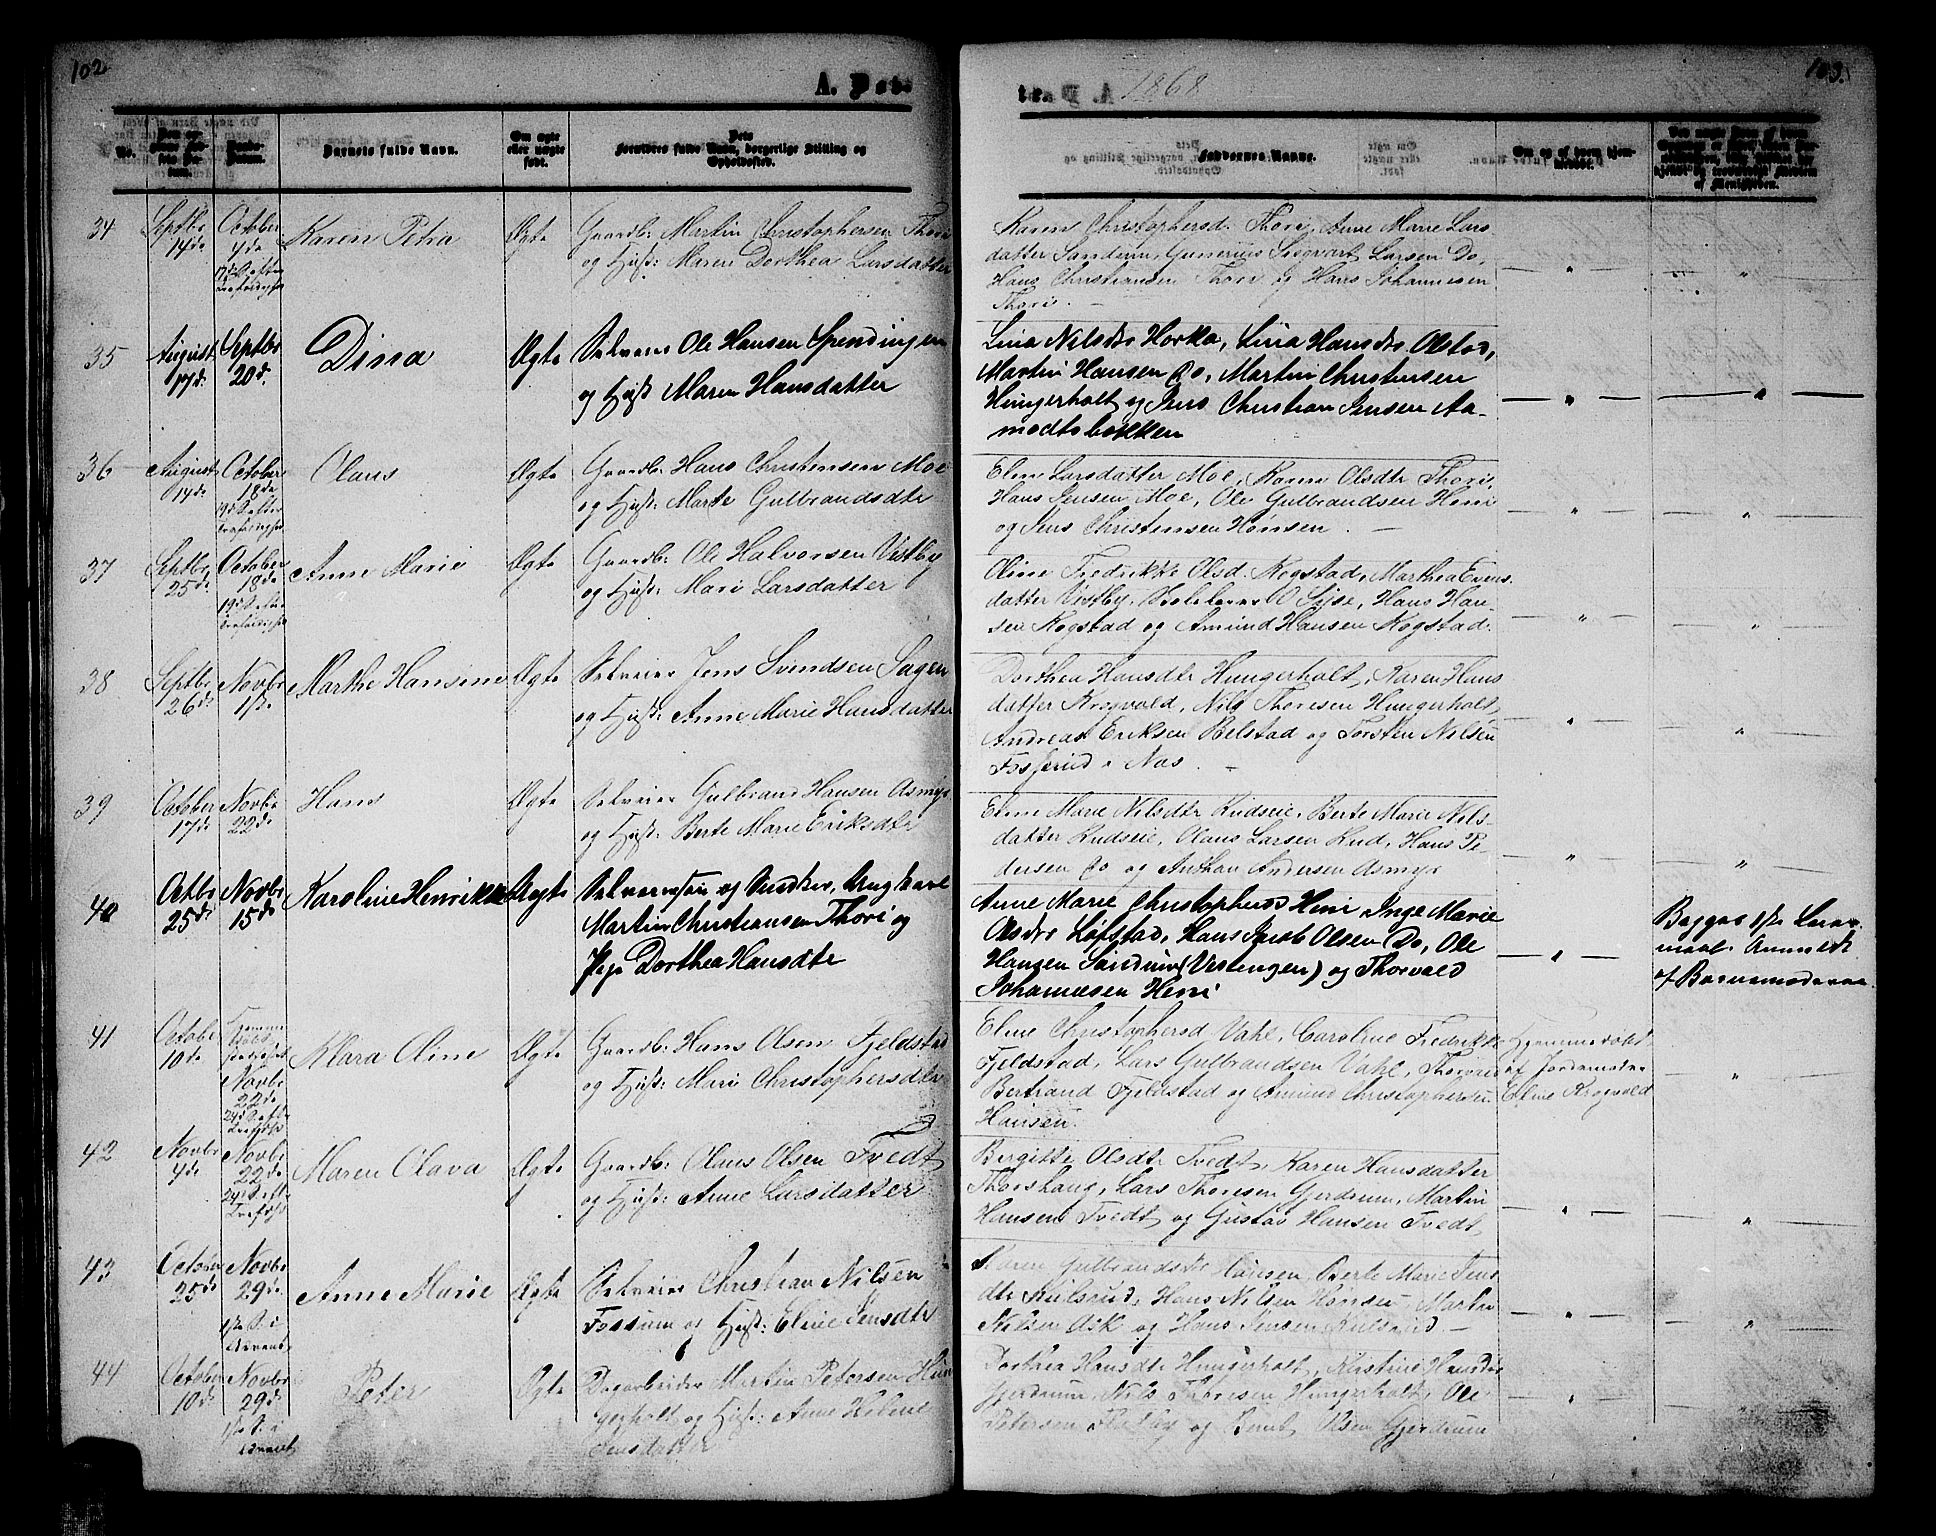 102
A. Pøt
1868
103.
No.
Barnets fulde Navn.
Om ægte eller uægte født.
Forældres fulde Navn, borgerlige Stilling og Opholdssted.
Faddernes Navne.
34 Septbr 14de October 4de Karen Petra Ægte Gaardb: Martin Christophersen Thori
og Hust: Maren Dorthea Larsdatter
Karen Christophersd. Thori, Anne Marie Lars
datter Sandum, Gunerius Sigvart Larsen Do,
Hans Christiansen Thori og Hans Johannesen
Thori.
35 August 17de Septbr 20de Dina Ægte Selveier Ole Hansen Spendingen
og Hust: Maren Hansdatter
Lina Nilsdtr Horka, Lina Hansdtr Olstad,
Martin Hansen Do, Martin Christensen
Hungerholt og Jens Christian Jensen Aa-
modtsbakken
36 August 14de October 18de Olaus Ægte Gaardb: Hans Christensen Moe
og Hust: Marte Gulbrandsdtr
Eline Larsdatter Moe, Karen Olsdtr Thori,
Hans Jensen Moe, Ole Gulbrandsen Heni
og Jens Christensen Hønsen.
37 Septbr 25de October 18de Anne Marie Ægte Gaardb: Ole Halvorsen Vestby
og Hust: Mari Larsdatter
Oline Fredrikke Olsd. Kogstad, Marthea Evens
datter Vestby, O Hans Han-
sen Kogstad og Amund Hansen Kogstad.
38 Septbr 26de Novbr 1ste Marthe Hansine Ægte Selveier Jens Svendsen Sagen
og Hust: Anne Marie Hansdatter
Dorthea Hansdtr Hungerholt, Karen Hans
datter Krogvold, Nils Thoresen Hungerholt,
Andreas Eriksen Belstad og Torsten Nilsen
Fosserud i Næs.
39 October 17de Novbr 22de Hans Ægte Selveier Gulbrand Hansen Asmyr
og Hust: Berte Marie Eriksdtr
Eline Marie Nilsdtr Rudseie, Berte Marie Nils-
datter Rudseie, Olaus Larsen Rud, Hans Pe-
dersen Do og Anthon Andersen Asmyr
40 Octbr 25de Novbr 15de Karoline Henrikke Uægte Selveiersøn og Snedker, Ungkarl
Martin Christiansen Thori og
Pige Dorthea Hansdtr
Anne Marie Christophersd Heni, Inge Marie
Olsdtr Løfstad, Hans Jacob Olsen Do, Ole
Hansen Sandum (Vestengen) og Thorvald
Johannesen Heni
Begges 1ste Leier-
maal. Anmeldt
af Barnemoderen.
41 October 10de Novbr 22de Klara Oline Ægte Gaardb: Hans Olsen Fjeldstad
og Hust: Mari Christophersdtr
Eline Christophersd Vahl, Caroline Fredrikke
Fjeldstad, Lars Gulbrandsen Vahl, Thorvald
Bertrand Fjeldstad og Amund Christophersen
Hansen.
Hjemmedøbt
af Jordemoder
Eline Krogvold
42 Novbr 4de Novbr 22de Maren Olava Ægte Gaardb: Olaus Olsen Tvedt
og Hust: Anne Larsdatter
Bergitte Olsdtr Tvedt, Karen Hansdatter
Thorshaug, Lars Thoresen Gjerdrum, Martin
Hansen Tvedt og Gustav Hansen Tvedt,
43 October 25de Novbr 29de 1ste S. i Advent Anne Marie Ægte Selveier Christian Nilsen
Fossum og Hust: Eline Jensdtr
Karen Gulbrandsdtr Hønsen, Berte Marie Jens
dtr Kulsrud, Hans Nilsen Hønsen, Martin
Nilsen Ask og Hans Jensen Kulsrud.
44 October 10de Novbr 29de 1ste S. i Advent Peter Ægte Dagarbeider Martin Petersen Hun
gerholt og Hust: Anne Helene
Jensdatter
Dorthea Hansdtr Hungerholt, Kirstine Hansdtr
Gjerdrum, Nils Thoresen Hungerholt, Ole
Petersen og Bernt Olsen Gjerdrum